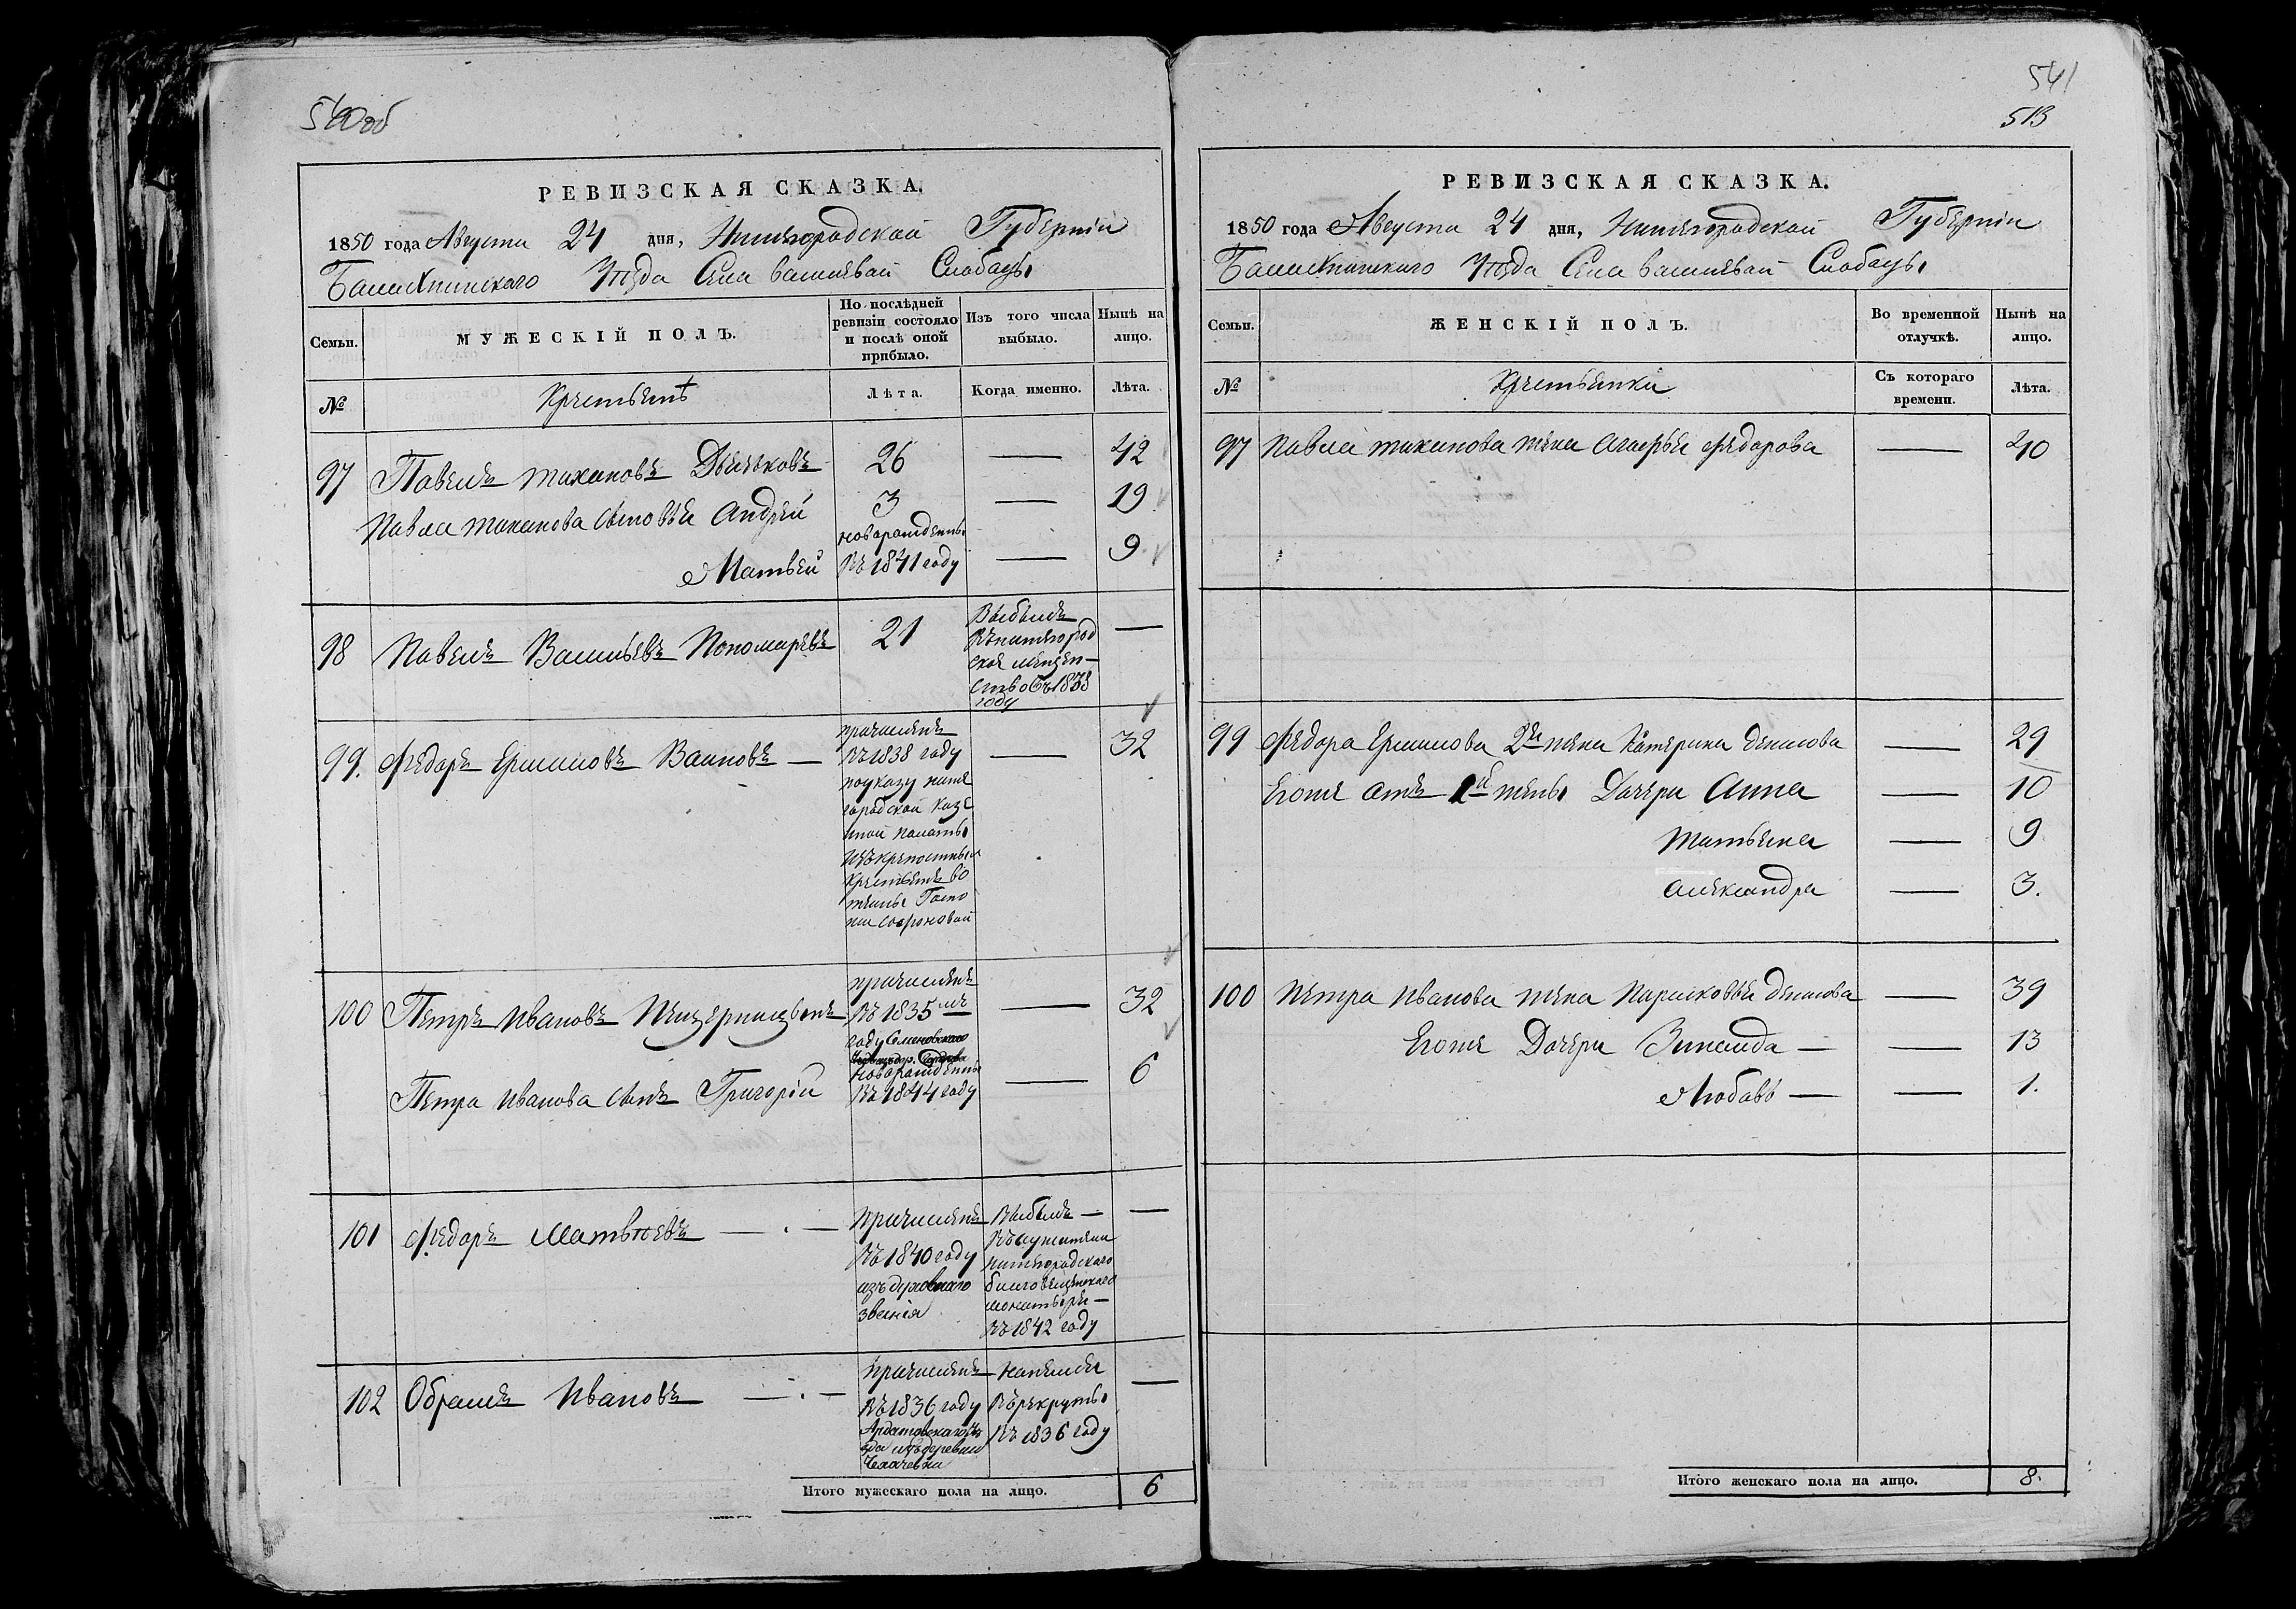 540об
РЕВИЗСКАЯ СКАЗКА.
1850 года Августа 24 дня, Нижегородской Губернiи
Балахнинскаго Уѣзда Села Василевай Слободы
Семьи.
МУЖЕСКIЙ ПОЛЪ.
По послѣдней ревизiи состояло и послѣ оной прибыло.
Изъ того числа выбыло.
Нынѣ на лицо.
№
Крестьянѣ
Лѣта.
Когда именно.
Лѣта.
97 Павелъ Тихановъ Дьячьковъ 26 — 42
Павла Тиханова сыновья Андрей 3 — 19
новарожденны
Матвей Въ 1841 году — 9
98 Павелъ Васильевъ Пономаревъ 21 —
Выбылъ
Вънижегород
ское мещен-
ство Въ 1838
году
99. Федоръ Ермиловъ Ваиновъ — — 32
причисленъ
Въ 1838 году
поуказу ниже
городской Казе
нной палаты
Изъкрепостныхъ
Крестьянъ во
Госпо
жи Сафроновай
100 Петръ Ивановъ — 32
причисленъ
Въ 1835мъ
году Семеновскаго
новарожденны
Петра Иванова сынъ Григорiй Въ 1844 году — 6
101 Федоръ Матвѣевъ — · — —
причисленъ
Въ 1840 году
изъ духовнаго
званiя
Выбылъ —
Въслужители
нижегородскаго
благовещенскаго
монастыря —
Въ 1842 году
102 Обрамъ Ивановъ — · — —
причисленъ
Въ 1836 году
Ардатовскаго уѣ
зда изъ деревни
Взятъ Върекруты
Въ 1836 году
Итого мужескаго пола на лицо. 6
541
513
РЕВИЗСКАЯ СКАЗКА.
1850 года Августа 24 дня, Нижегородской Губернiи
Балахнинскаго Уѣзда Села Василевай Слободы
Семьи.
ЖЕНСКIЙ ПОЛЪ.
Во временной отлучкѣ.
Нынѣ на лицо.
№
Крестьянки
Съ котораго времени.
Лѣта.
97 Павла Тиханова жена Агафья Федорова — 40
99 Федора Ермилова 2я жена Катерина Денисова — 29
Егоже отъ 1й жены Дочери Анна — 10
Татьяна — 9
Александра — 3.
100 Петра Иванова жена Парасковья Денисова — 39
Егоже Дочери Зинаида — — 13
Любавь — — 1.
Итого женскаго пола на лицо. 8.